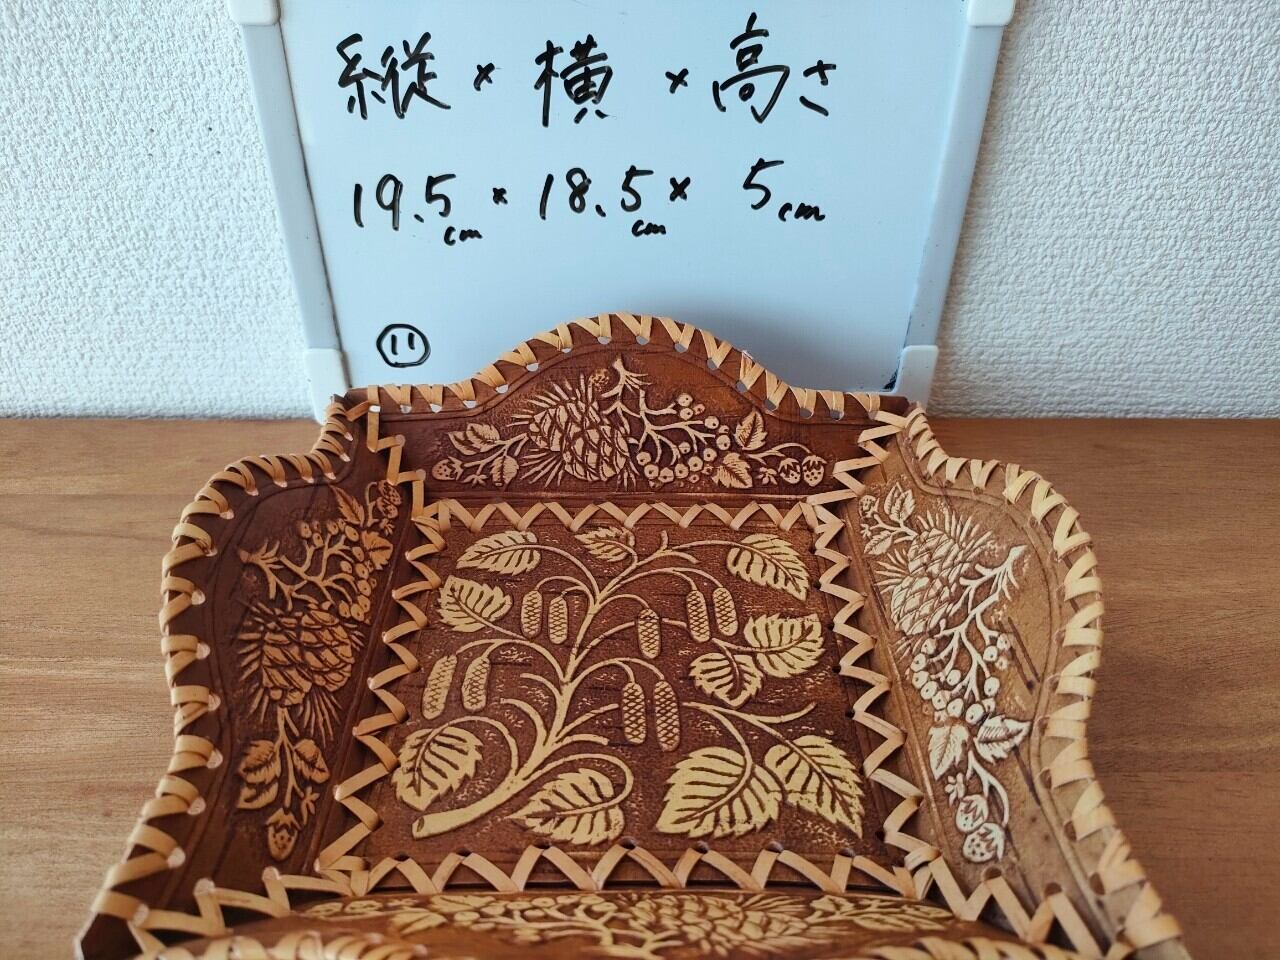 縦 × 横 × 高さ
19.5cm × 18.5cm × 5cm
⑪